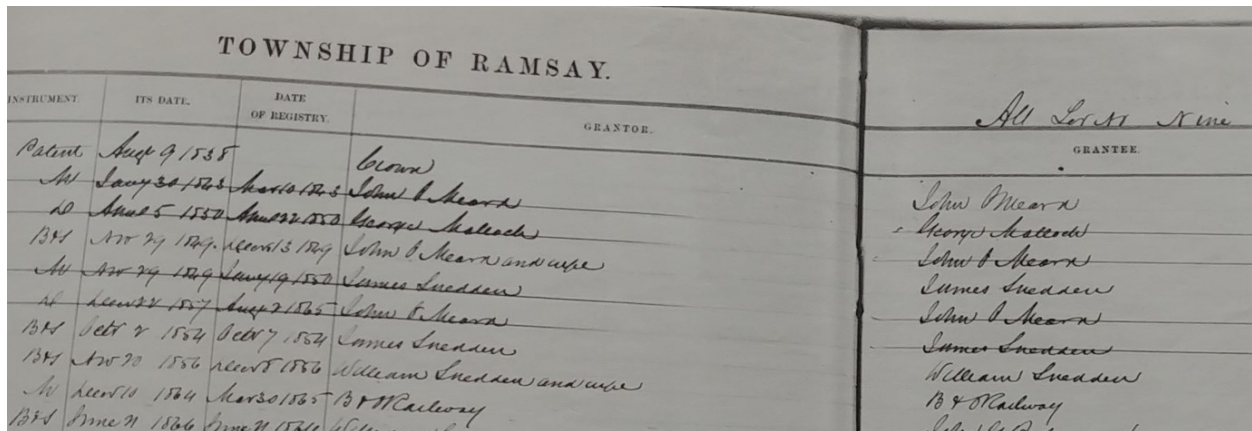 TOWNSHIP OF RAMSAY.
All Lot No Nine
INSTRUMENT. ITS DATE. DATE OF REGISTRY. GRANTOR. GRANTEE.
Patent Augt 9 1838 Crown John O Meara
M Jany 30 1843 Mar 10 1843 John O Meara George Malloch
D April 5 1850 April 22 1850 George Malloch John O Meara
B&S Nov 29 1849 Decr 13 1849 John O Meara and wife James Snedden
M Nov 29 1849 Jany 19 1850 James Snedden John O Meara
D Decr 22 1857 Augt 2 1865 John O Meara James Snedden
B&S Octr 2 1854 Octr 7 1854 James Snedden William Snedden
B&S Nov 20 1856 Decr 8 1856 William Snedden and wife B & O Railway
M Decr 10 1864 Mar 30 1865 B & O Railway
B&S June 21 1866 June 21